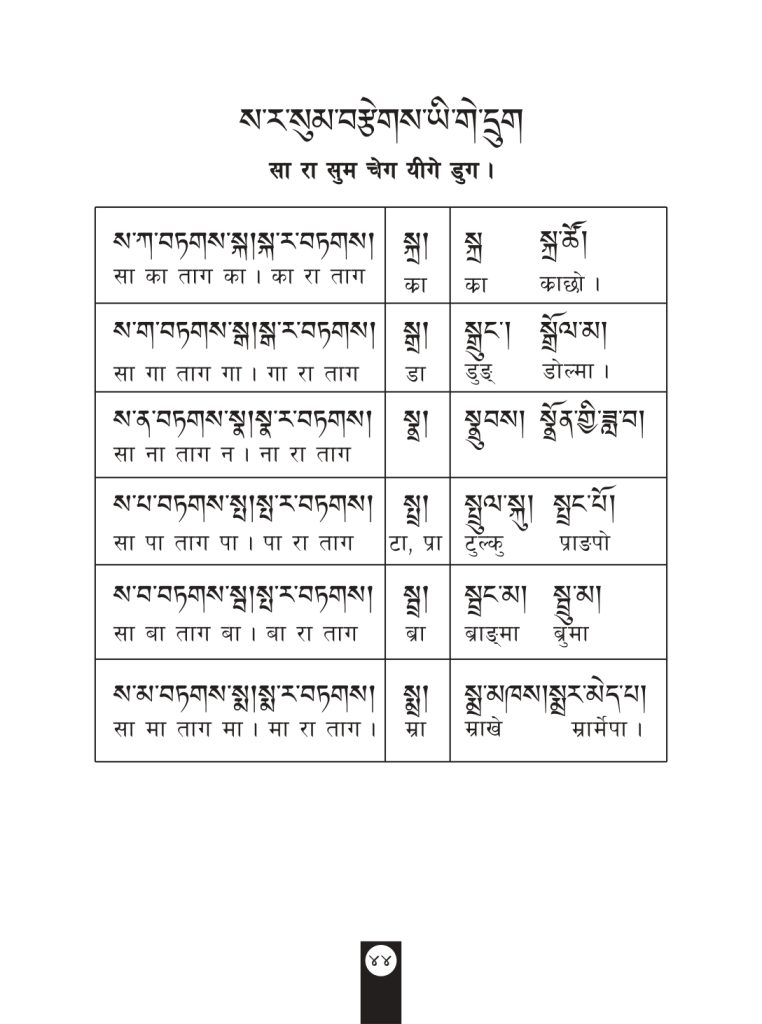 ས་ར་སུམ་བརྩེགས་ཡི་གེ་དྲུག
सा रा सुम चेग यीगे डुग ।
ས་ཀ་བཏགས་སྐ།སྐ་ར་བཏགས། སྐྲ། སྐྲ སྐྲ་ཚོ།
सा का ताग का । का रा ताग का का काछो ।
ས་ག་བཏགས་སྒ།སྒ་ར་བཏགས། སྒྲ། སྒྲུང་། སྒྲོལ་མ།
सा गा ताग गा । गा रा ताग डा डुङ् डोल्मा ।
ས་ན་བཏགས་སྣ།སྣ་ར་བཏགས། སྣྲ། སྣྲུབས། སྣྲོན་གྱི་ཟླ་བ།
सा ना ताग न । ना रा ताग
ས་པ་བཏགས་སྤ།སྤ་ར་བཏགས། སྤྲ། སྤྲུལ་སྐུ། སྤྲང་པོ།
सा पा ताग पा । पा रा ताग टा, प्रा टुल्कु प्राङपो
ས་བ་བཏགས་སྦ།སྦ་ར་བཏགས། སྦྲ། སྦྲང་མ། སྦྲུ་མ།
सा बा ताग बा । बा रा ताग ब्रा ब्राङ्मा ब्रुमा
ས་མ་བཏགས་སྨ།སྨ་ར་བཏགས། སྨྲ། སྨྲ་མཁས།སྨྲར་མེད་པ།
सा मा ताग मा । मा रा ताग । म्रा म्राखे म्रार्मेपा ।
४४